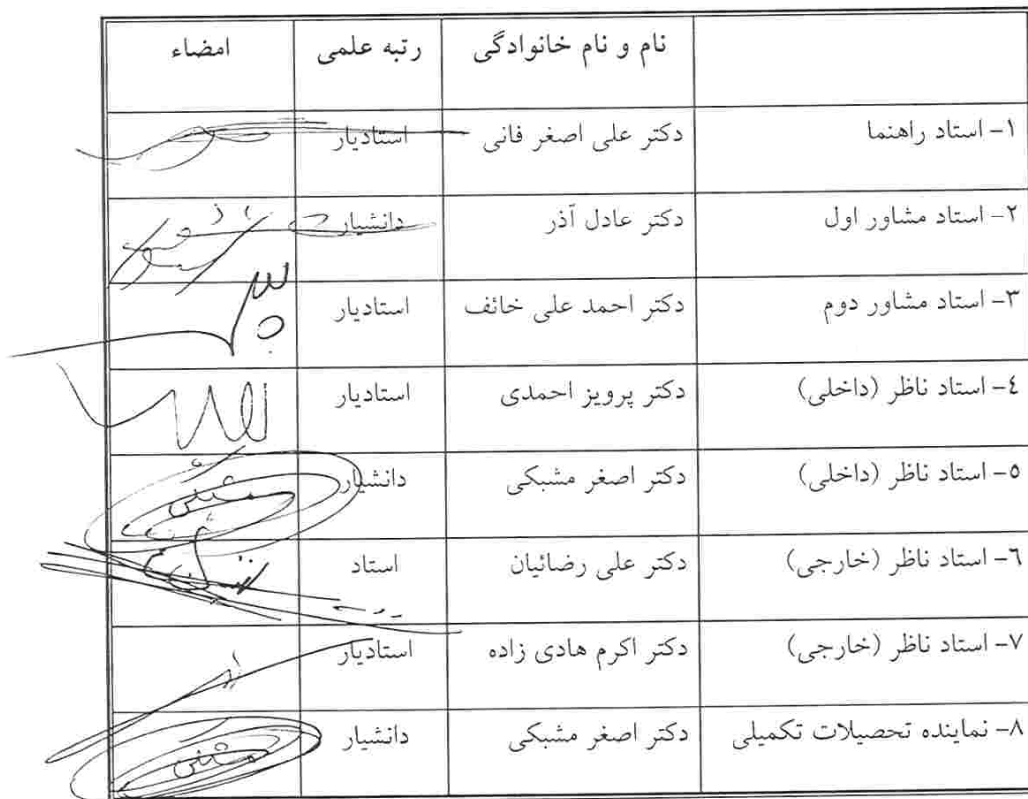 نام و نام خانوادگی رتبه علمی امضاء
۱- استاد راهنما دکتر علی اصغر فانی استادیار
۲- استاد مشاور اول دکتر عادل آذر دانشیار
۳- استاد مشاور دوم دکتر احمد علی خائف استادیار
٤- استاد ناظر (داخلی) دکتر پرویز احمدی استادیار
٥- استاد ناظر (داخلی) دکتر اصغر مشبکی دانشیار
٦- استاد ناظر (خارجی) دکتر علی رضائیان استاد
۷- استاد ناظر (خارجی) دکتر اکرم هادی زاده استادیار
۸- نماینده تحصیلات تکمیلی دکتر اصغر مشبکی دانشیار